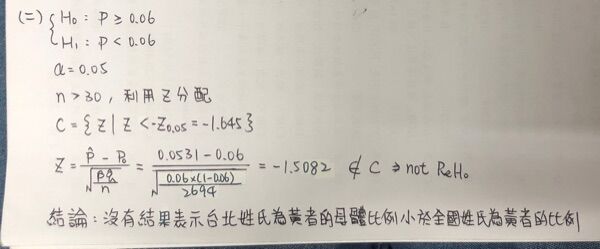 (二) { H₀ : P ≥ 0.06
H₁ : P < 0.06
α = 0.05
n > 30 , 利用 Z 分配
C = { Z | Z < -Z₀.₀₅ = -1.645 }
Z = (p̂ - P₀) / √(p₀q₀/n) = (0.0531 - 0.06) / √(0.06×(1-0.06)/2694) = -1.5082 ∉ C ⇒ not ReH₀
結論 : 沒有結果表示台北姓氏為黃者的母體比例小於全國姓氏為黃者的比例